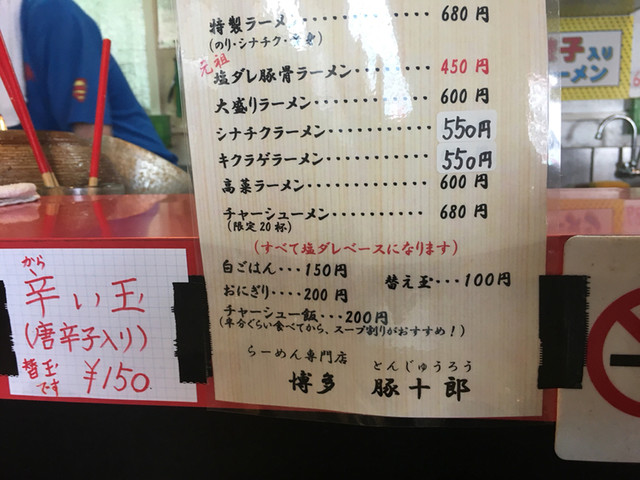 特製ラーメン・・・・・・・・・・・680円
元祖
塩ダレ豚骨ラーメン・・・・・・・450円
大盛りラーメン・・・・・・・・・・600円
シナチクラーメン・・・・・・・・・550円
キクラゲラーメン・・・・・・・・・550円
高菜ラーメン・・・・・・・・・・・600円
チャーシューメン・・・・・・・・・680円
(限定20杯)
(すべて塩ダレベースになります)
白ごはん・・・150円
替え玉・・・100円
おにぎり・・・・200円
チャーシュー飯・・・200円
(半分ぐらい食べてから、スープ割りがおすすめ!)
らーめん専門店
とんじゅうろう
博多 豚十郎
から
辛い玉
(唐辛子入り)
替玉です ¥150.
子入り
ラーメン